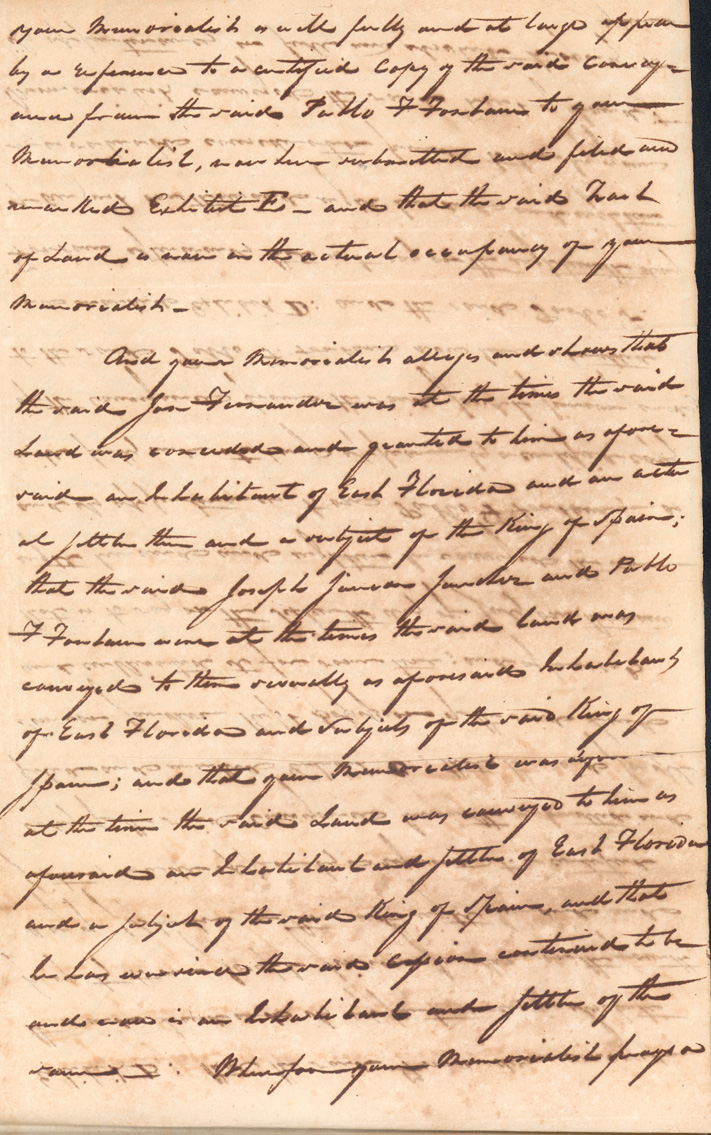 your Memorialist as will fully and at large appear
by a refference to a certified Copy of the said Convey=
ance from the said Pablo F Fontane to your
Memorialist, now here submitted and filed and
marked Exhibit E – and that the said Tract
of Land is now in the actual occupancy of your
Memorialist –
And your Memorialist alleges and shows that
the said Jose Fernandez was at the times the said
Land was conceded and granted to him as afore=
said an Inhabitant of East Florida and an actu
al settler there and a subject of the King of Spain;
that the said Joseph Simeon Sanchez and Pablo
F Fontane were at the times the said Land was
conveyed to them severally as aforesaid Inhabitants
of East Florida and Subjects of the said King of
Spain; and that your Memorialist was
at the time the said Land was conveyed to him as
aforesaid an Inhabitant and settler of East Florida
and a subject of the said King of Spain, and that
he has ever since the said continued to be
and now is an Inhabitant and settler of the
same –. Wherefore your Memorialist prays a